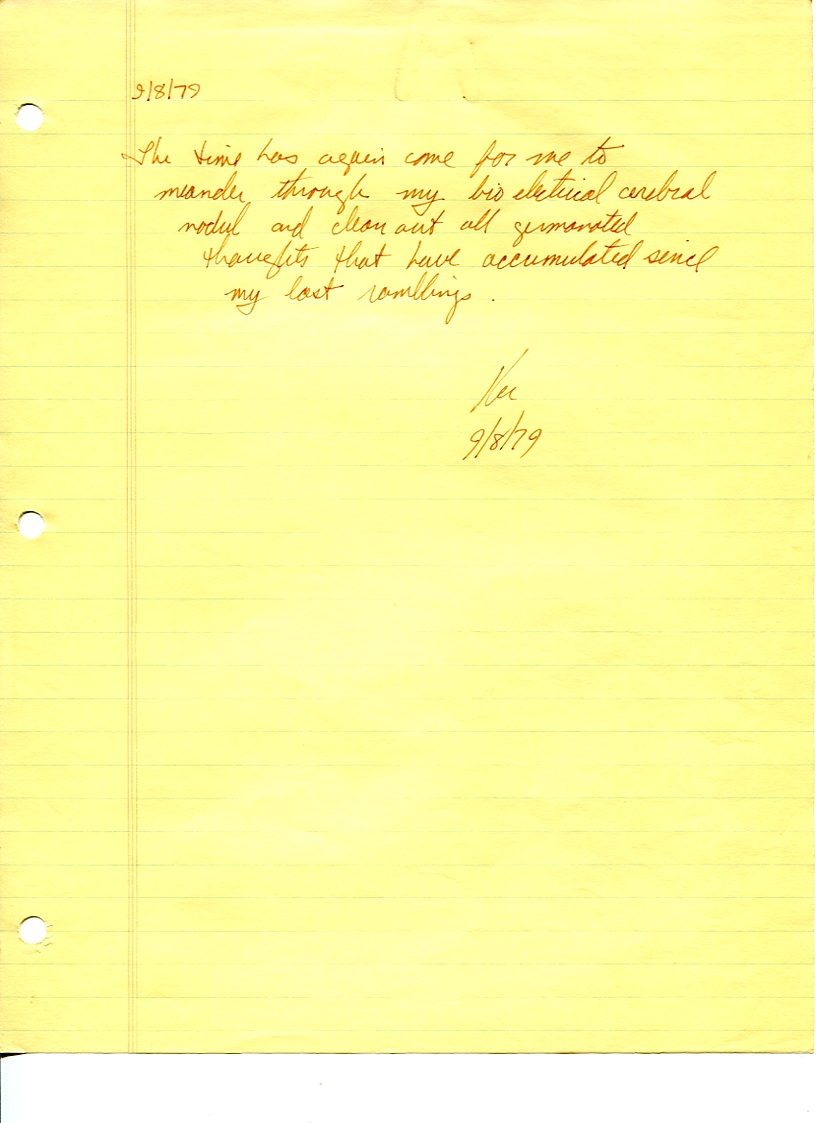 9/8/79
The time has again come for me to
meander through my bio eletrical cerebral
nodul and clean out all germanated
thoughts that have accumulated since
my last ramblings.
9/8/79